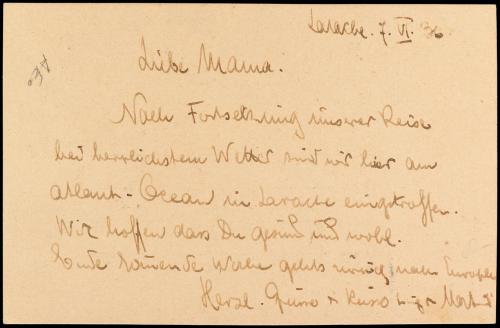 Larache. 7. VI. 36
Liebe Mama.
Nach Fortsetzung unserer Reise
bei herrlichstem Wetter sind wir hier am
atlant. Ocean in Larache eingetroffen.
Wir hoffen dass Du gesund und wohl.
Ende kommende Woche gehts nach Europa
Herzl. Grüsse + Küsse